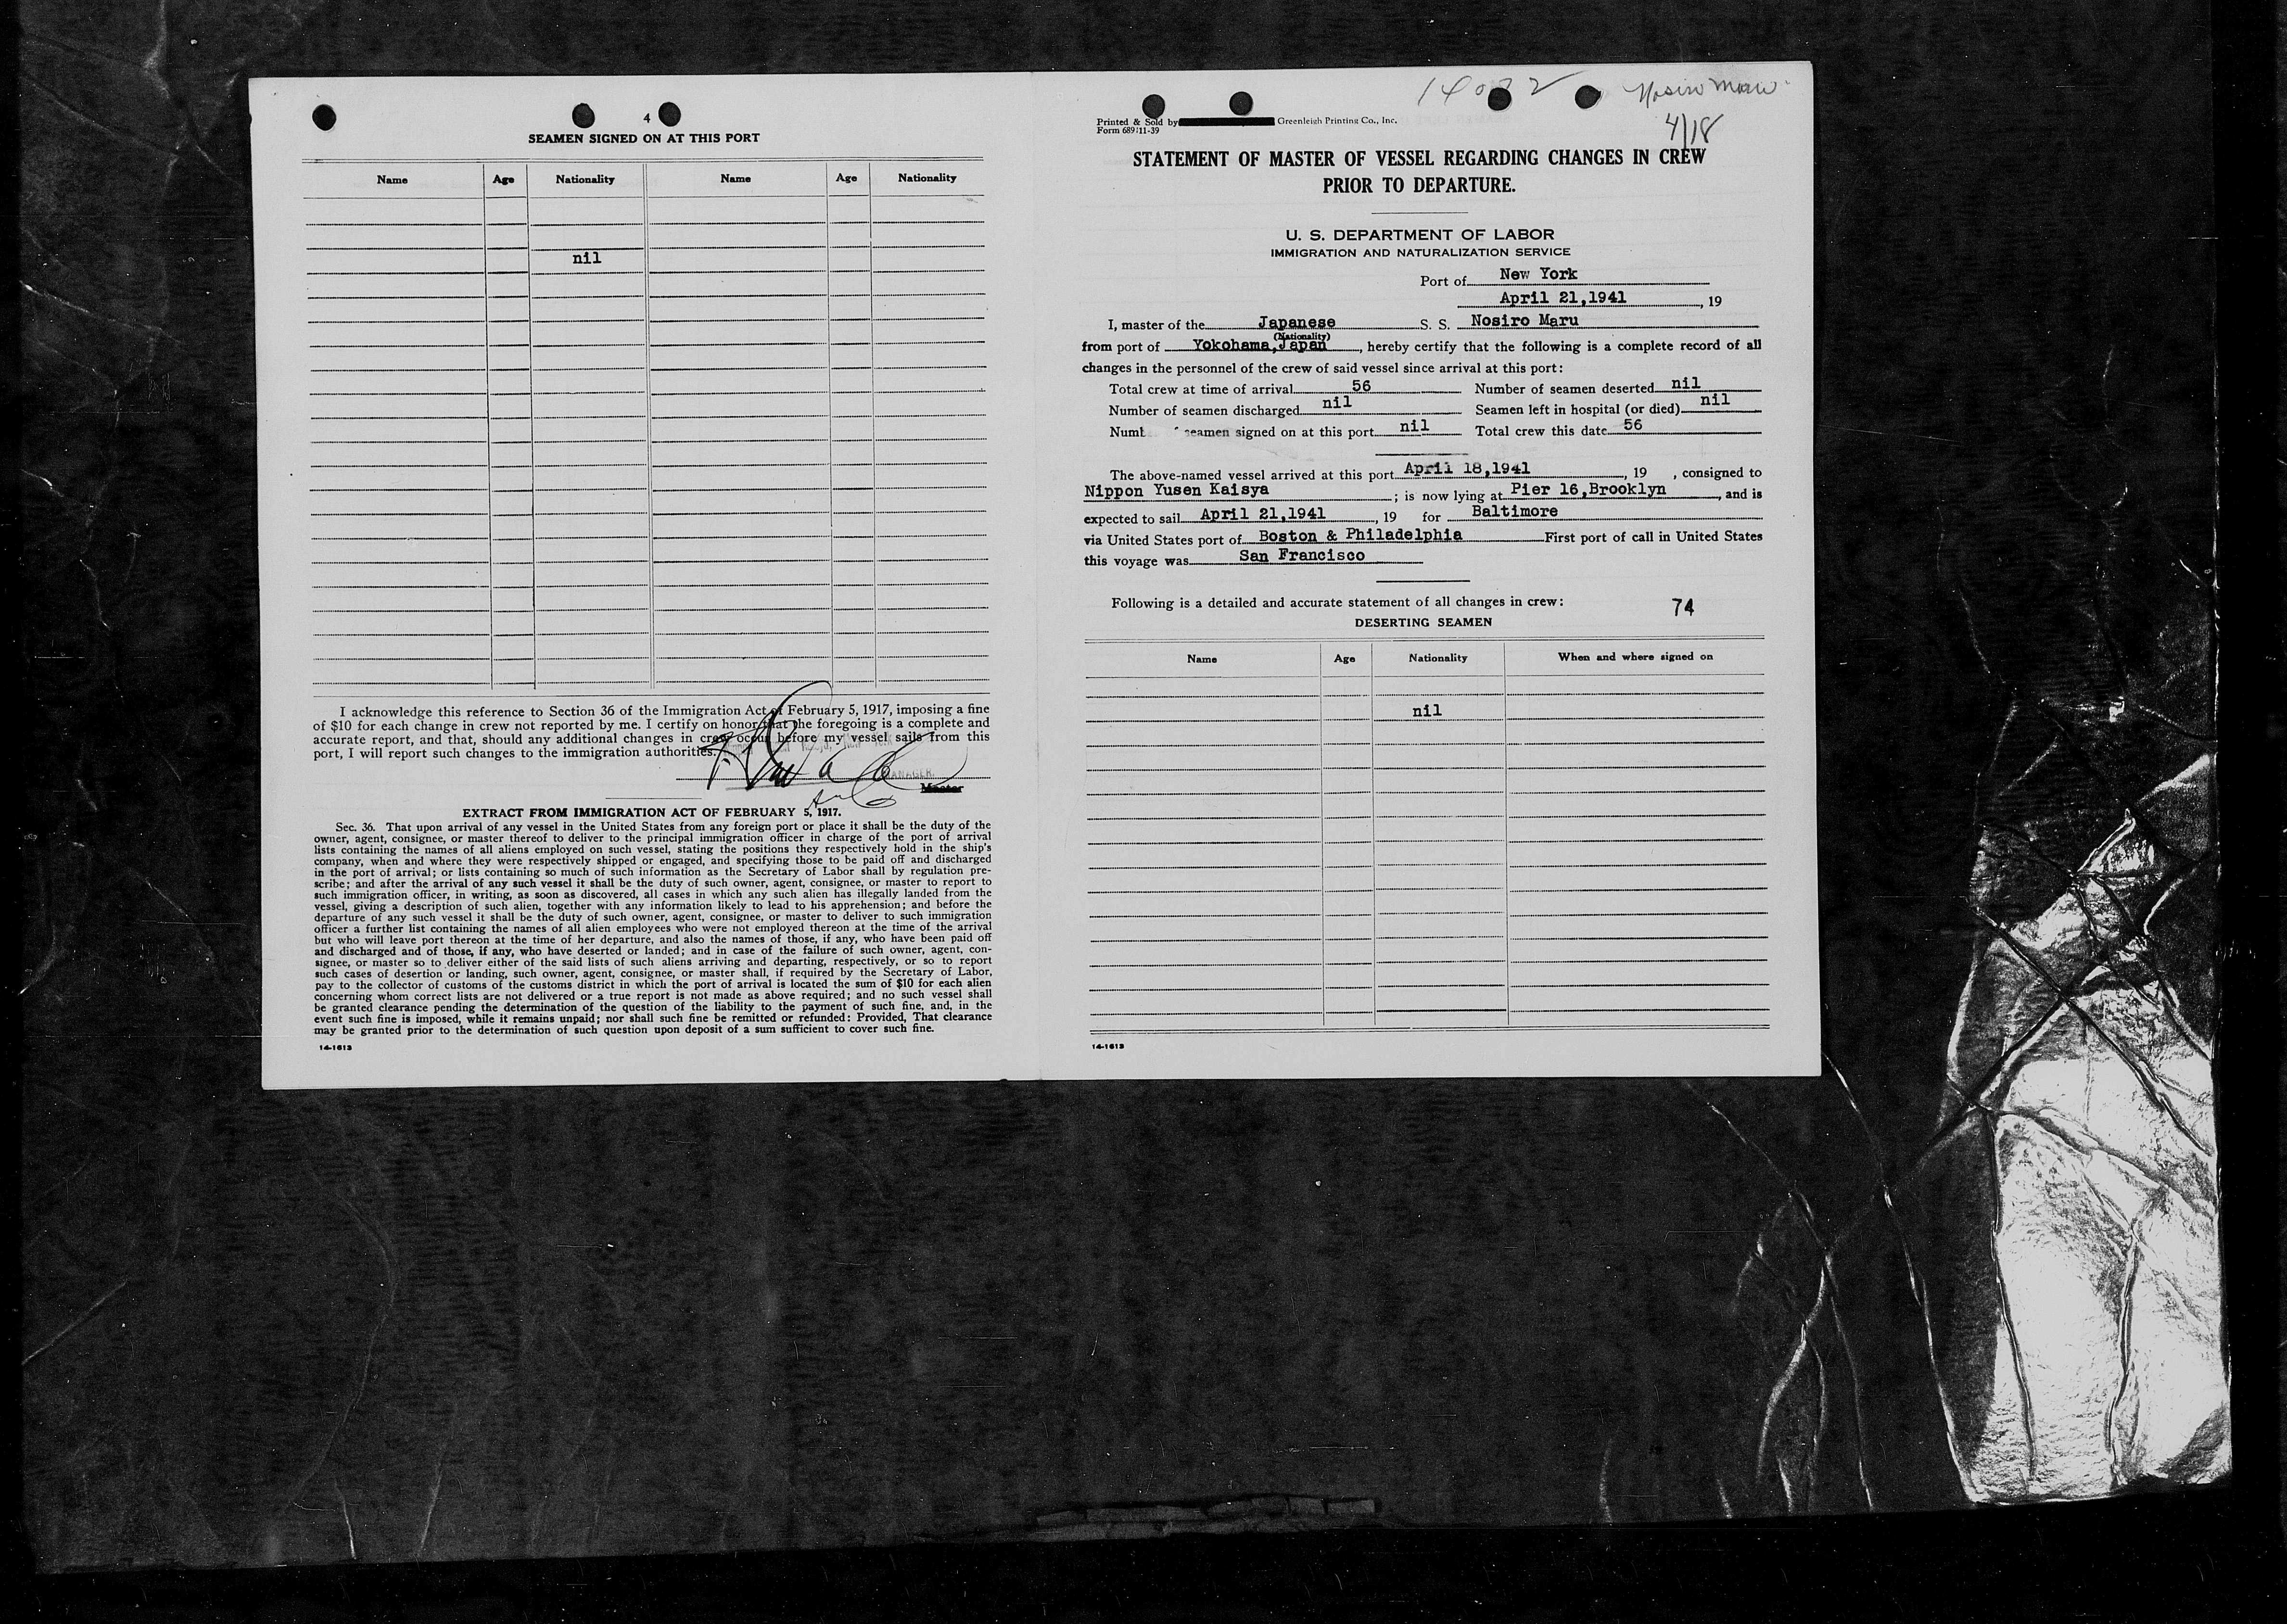 4
SEAMEN SIGNED ON AT THIS PORT
Name Age Nationality Name Age Nationality
nil
I acknowledge this reference to Section 36 of the Immigration Act of February 5, 1917, imposing a fine
of $10 for each change in crew not reported by me. I certify on honor that the foregoing is a complete and
accurate report, and that, should any additional changes in crew occur before my vessel sails from this
port, I will report such changes to the immigration authorities.
MANAGER.
Master
EXTRACT FROM IMMIGRATION ACT OF FEBRUARY 5, 1917.
Sec. 36. That upon arrival of any vessel in the United States from any foreign port or place it shall be the duty of the
owner, agent, consignee, or master thereof to deliver to the principal immigration officer in charge of the port of arrival
lists containing the names of all aliens employed on such vessel, stating the positions they respectively hold in the ship's
company, when and where they were respectively shipped or engaged, and specifying those to be paid off and discharged
in the port of arrival; or lists containing so much of such information as the Secretary of Labor shall by regulation pre-
scribe; and after the arrival of any such vessel it shall be the duty of such owner, agent, consignee, or master to report to
such immigration officer, in writing, as soon as discovered, all cases in which any such alien has illegally landed from the
vessel, giving a description of such alien, together with any information likely to lead to his apprehension; and before the
departure of any such vessel it shall be the duty of such owner, agent, consignee, or master to deliver to such immigration
officer a further list containing the names of all alien employees who were not employed thereon at the time of the arrival
but who will leave port thereon at the time of her departure, and also the names of those, if any, who have been paid off
and discharged and of those, if any, who have deserted or landed; and in case of the failure of such owner, agent, con-
signee, or master so to deliver either of the said lists of such aliens arriving and departing, respectively, or so to report
such cases of desertion or landing, such owner, agent, consignee, or master shall, if required by the Secretary of Labor,
pay to the collector of customs of the customs district in which the port of arrival is located the sum of $10 for each alien
concerning whom correct lists are not delivered or a true report is not made as above required; and no such vessel shall
be granted clearance pending the determination of the question of the liability to the payment of such fine, and, in the
event such fine is imposed, while it remains unpaid; nor shall such fine be remitted or refunded: Provided, That clearance
may be granted prior to the determination of such question upon deposit of a sum sufficient to cover such fine.
14-1613
Nosiro Maru
4/18
Printed & Sold by Greenleigh Printing Co., Inc.
Form 689 11-39
STATEMENT OF MASTER OF VESSEL REGARDING CHANGES IN CREW
PRIOR TO DEPARTURE.
U. S. DEPARTMENT OF LABOR
IMMIGRATION AND NATURALIZATION SERVICE
Port of New York
April 21,1941, 19
I, master of the Japanese S. S. Nosiro Maru
(Nationality)
from port of Yokohama, Japan, hereby certify that the following is a complete record of all
changes in the personnel of the crew of said vessel since arrival at this port:
Total crew at time of arrival 56 Number of seamen deserted nil
Number of seamen discharged nil Seamen left in hospital (or died) nil
seamen signed on at this port nil Total crew this date 56
The above-named vessel arrived at this port April 18,1941, 19 , consigned to
Nippon Yusen Kaisya; is now lying at Pier 16,Brooklyn, and is
expected to sail April 21,1941, 19 for Baltimore
via United States port of Boston & Philadelphia First port of call in United States
this voyage was San Francisco
Following is a detailed and accurate statement of all changes in crew: 74
DESERTING SEAMEN
Name Age Nationality When and where signed on
nil
14-1613